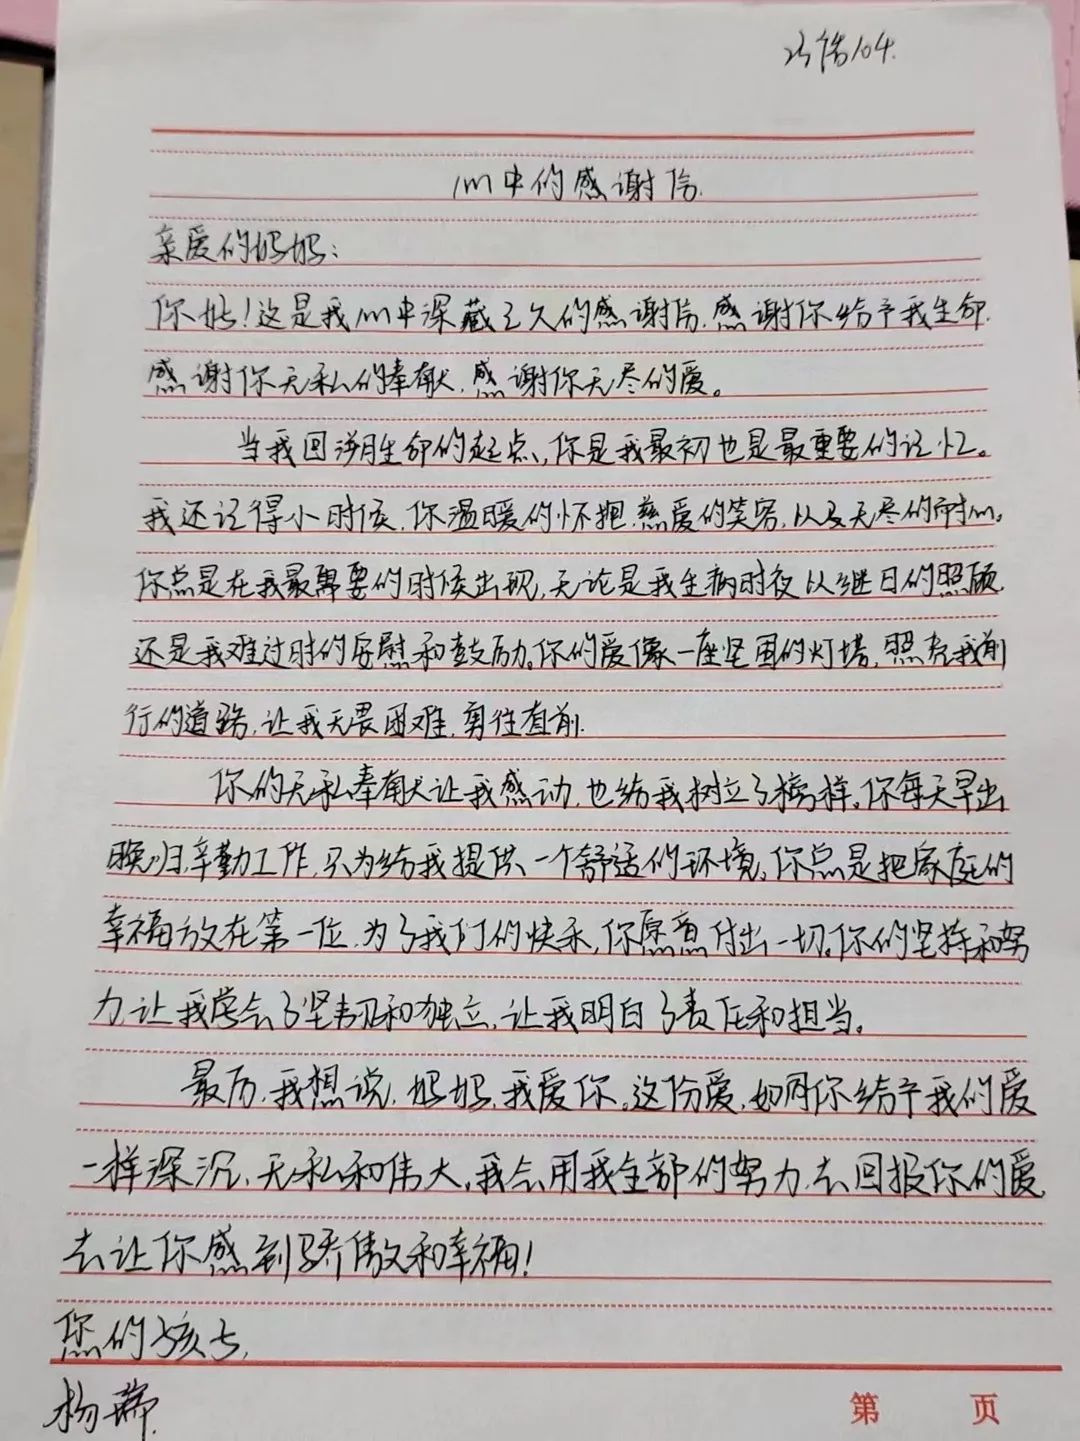 心中的感谢信
亲爱的妈妈：
你好！这是我心中深藏已久的感谢信，感谢你给予我生命，
感谢你无私的奉献，感谢你无尽的爱。
当我回溯生命的起点，你是我最初也是最重要的记忆。
我还记得小时候，你温暖的怀抱，慈爱的笑容，以及无尽的耐心。
你总是在我最需要的时候出现，无论是我生病时夜以继日的照顾，
还是我难过时的安慰和鼓励。你的爱像一座坚固的灯塔，照亮我前
行的道路，让我无畏困难，勇往直前。
你的无私奉献让我感动，也给我树立了榜样。你每天早出
晚归，辛勤工作，只为给我提供一个舒适的环境。你总是把家庭的
幸福放在第一位，为了我们的快乐，你愿意付出一切。你的坚持和努
力，让我学会了坚韧和独立，让我明白了责任和担当。
最后，我想说，妈妈，我爱你。这份爱，如同你给予我的爱
一样深沉，无私和伟大。我会用我全部的努力，去回报你的爱，
去让你感到骄傲和幸福！
您的孩子，
杨
第 页